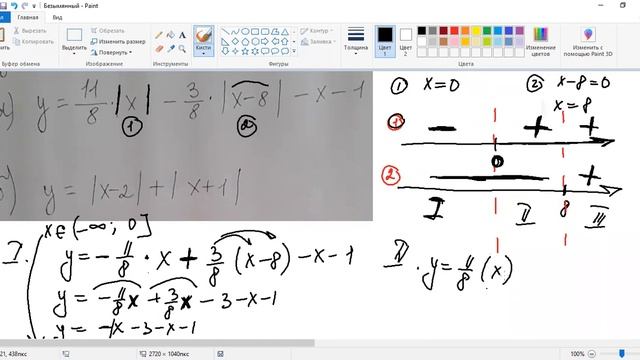 Безымянный - Paint
Вырезать
Копировать
Вставить
Буфер обмена
Выделить
Обрезать
Изменить размер
Повернуть
Изображение
Кисти
Инструменты
Контур
Заливка
Фигуры
Толщина
Цвет 1
Цвет 2
Изменение цветов
Изменить с помощью Paint 3D
Цвета
а) y = 11/8 · |x| - 3/8 · |x-8| - x - 1
① ②
б) y = |x-2| + |x+1|
① x=0 ② x-8=0
x=8
① - + +
0
② - +
I II 8 III
x∈(-∞; 0]
I. y = -11/8 · x + 3/8 (x-8) - x - 1
y = -11/8x + 3/8x - 3 - x - 1
y = -1x - 3 - x - 1
II. y = 11/8 (x)
21, 438пкс
2720 × 1040пкс
100%